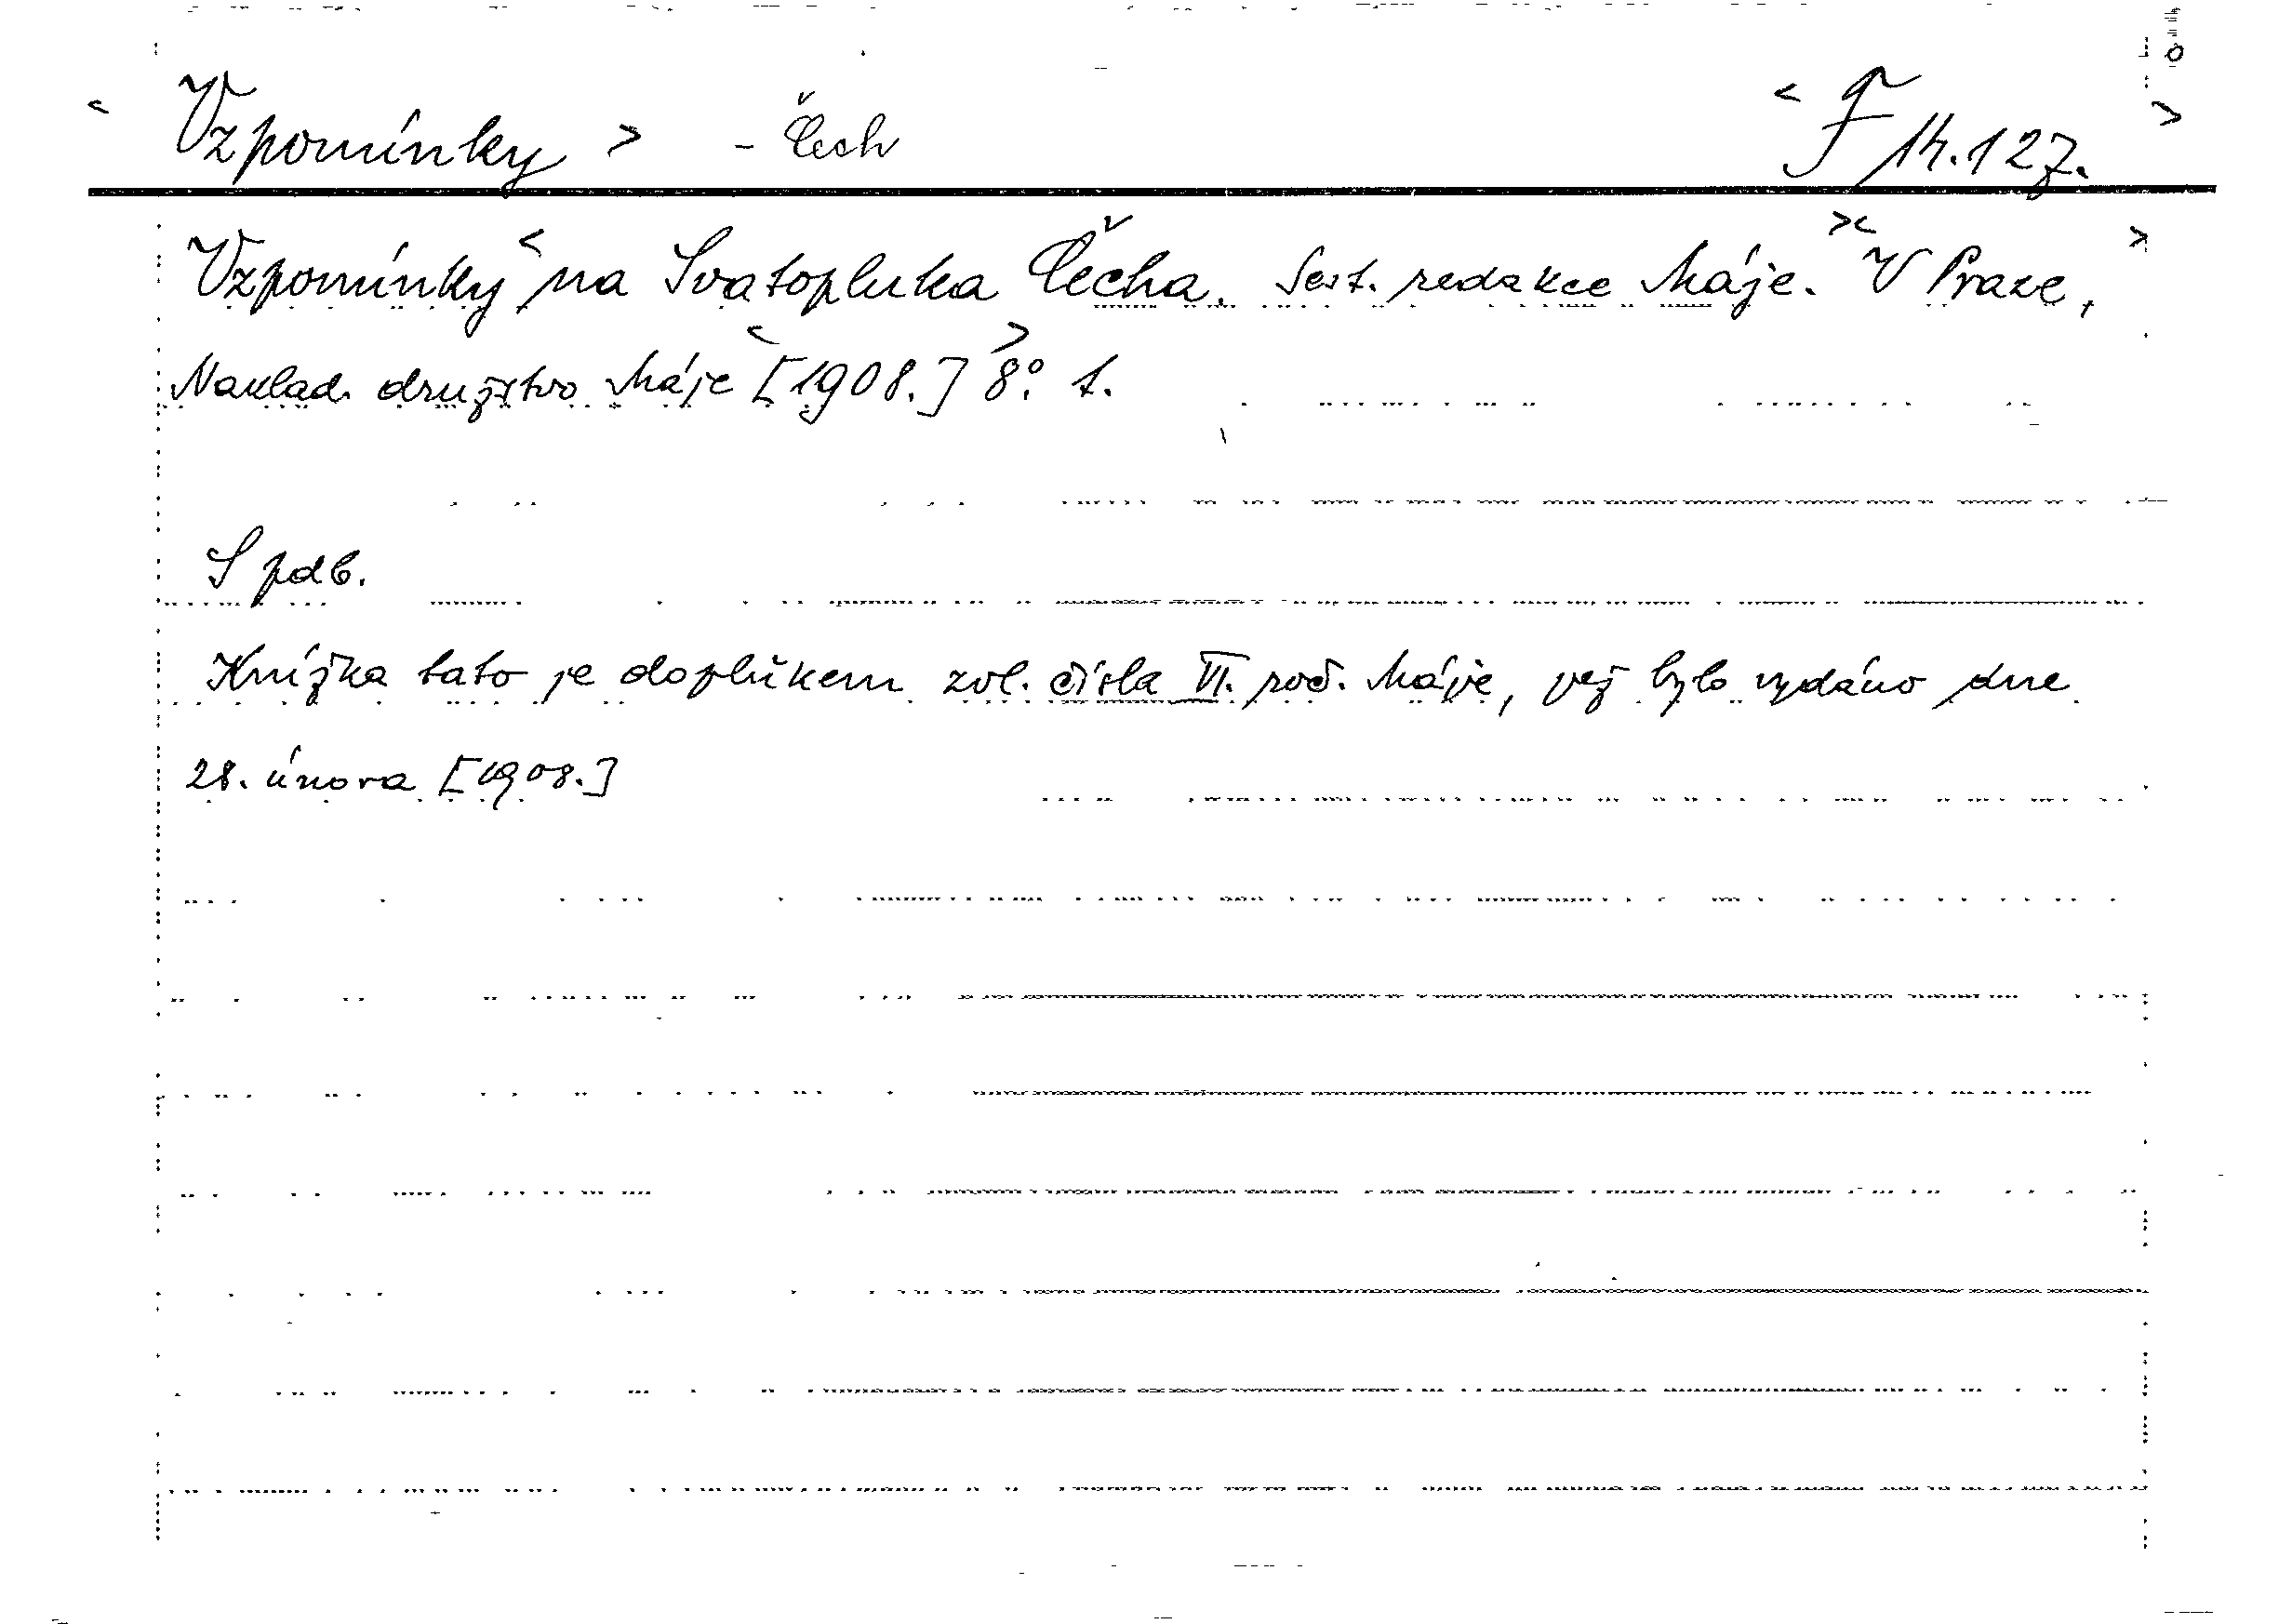 < Vzpomínky > - Čech < F 14.127. >
Vzpomínky < na Svatopluka Čecha. Sest. redakce Máje. >< V Praze, >
Naklad. družstvo Máje < [1908.] > 8°. 1.
S pdb.
Knížka tato je doplňkem zvl. čísla VI. roč. Máje, jež bylo vydáno dne
28. února [1908.]